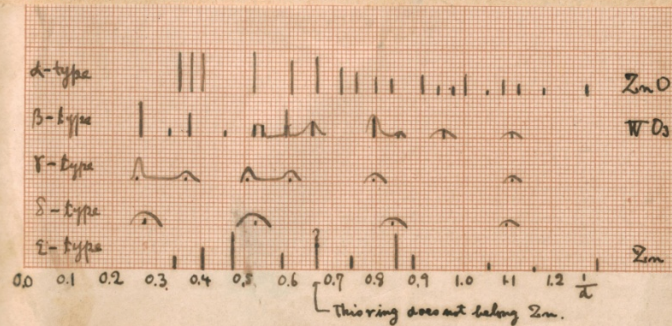 α-type ZnO
β-type WO₃
γ-type
δ-type
ε-type ? Zn
0.0 0.1 0.2 0.3 0.4 0.5 0.6 0.7 0.8 0.9 1.0 1.1 1.2 1/d
This ring does not belong Zn.